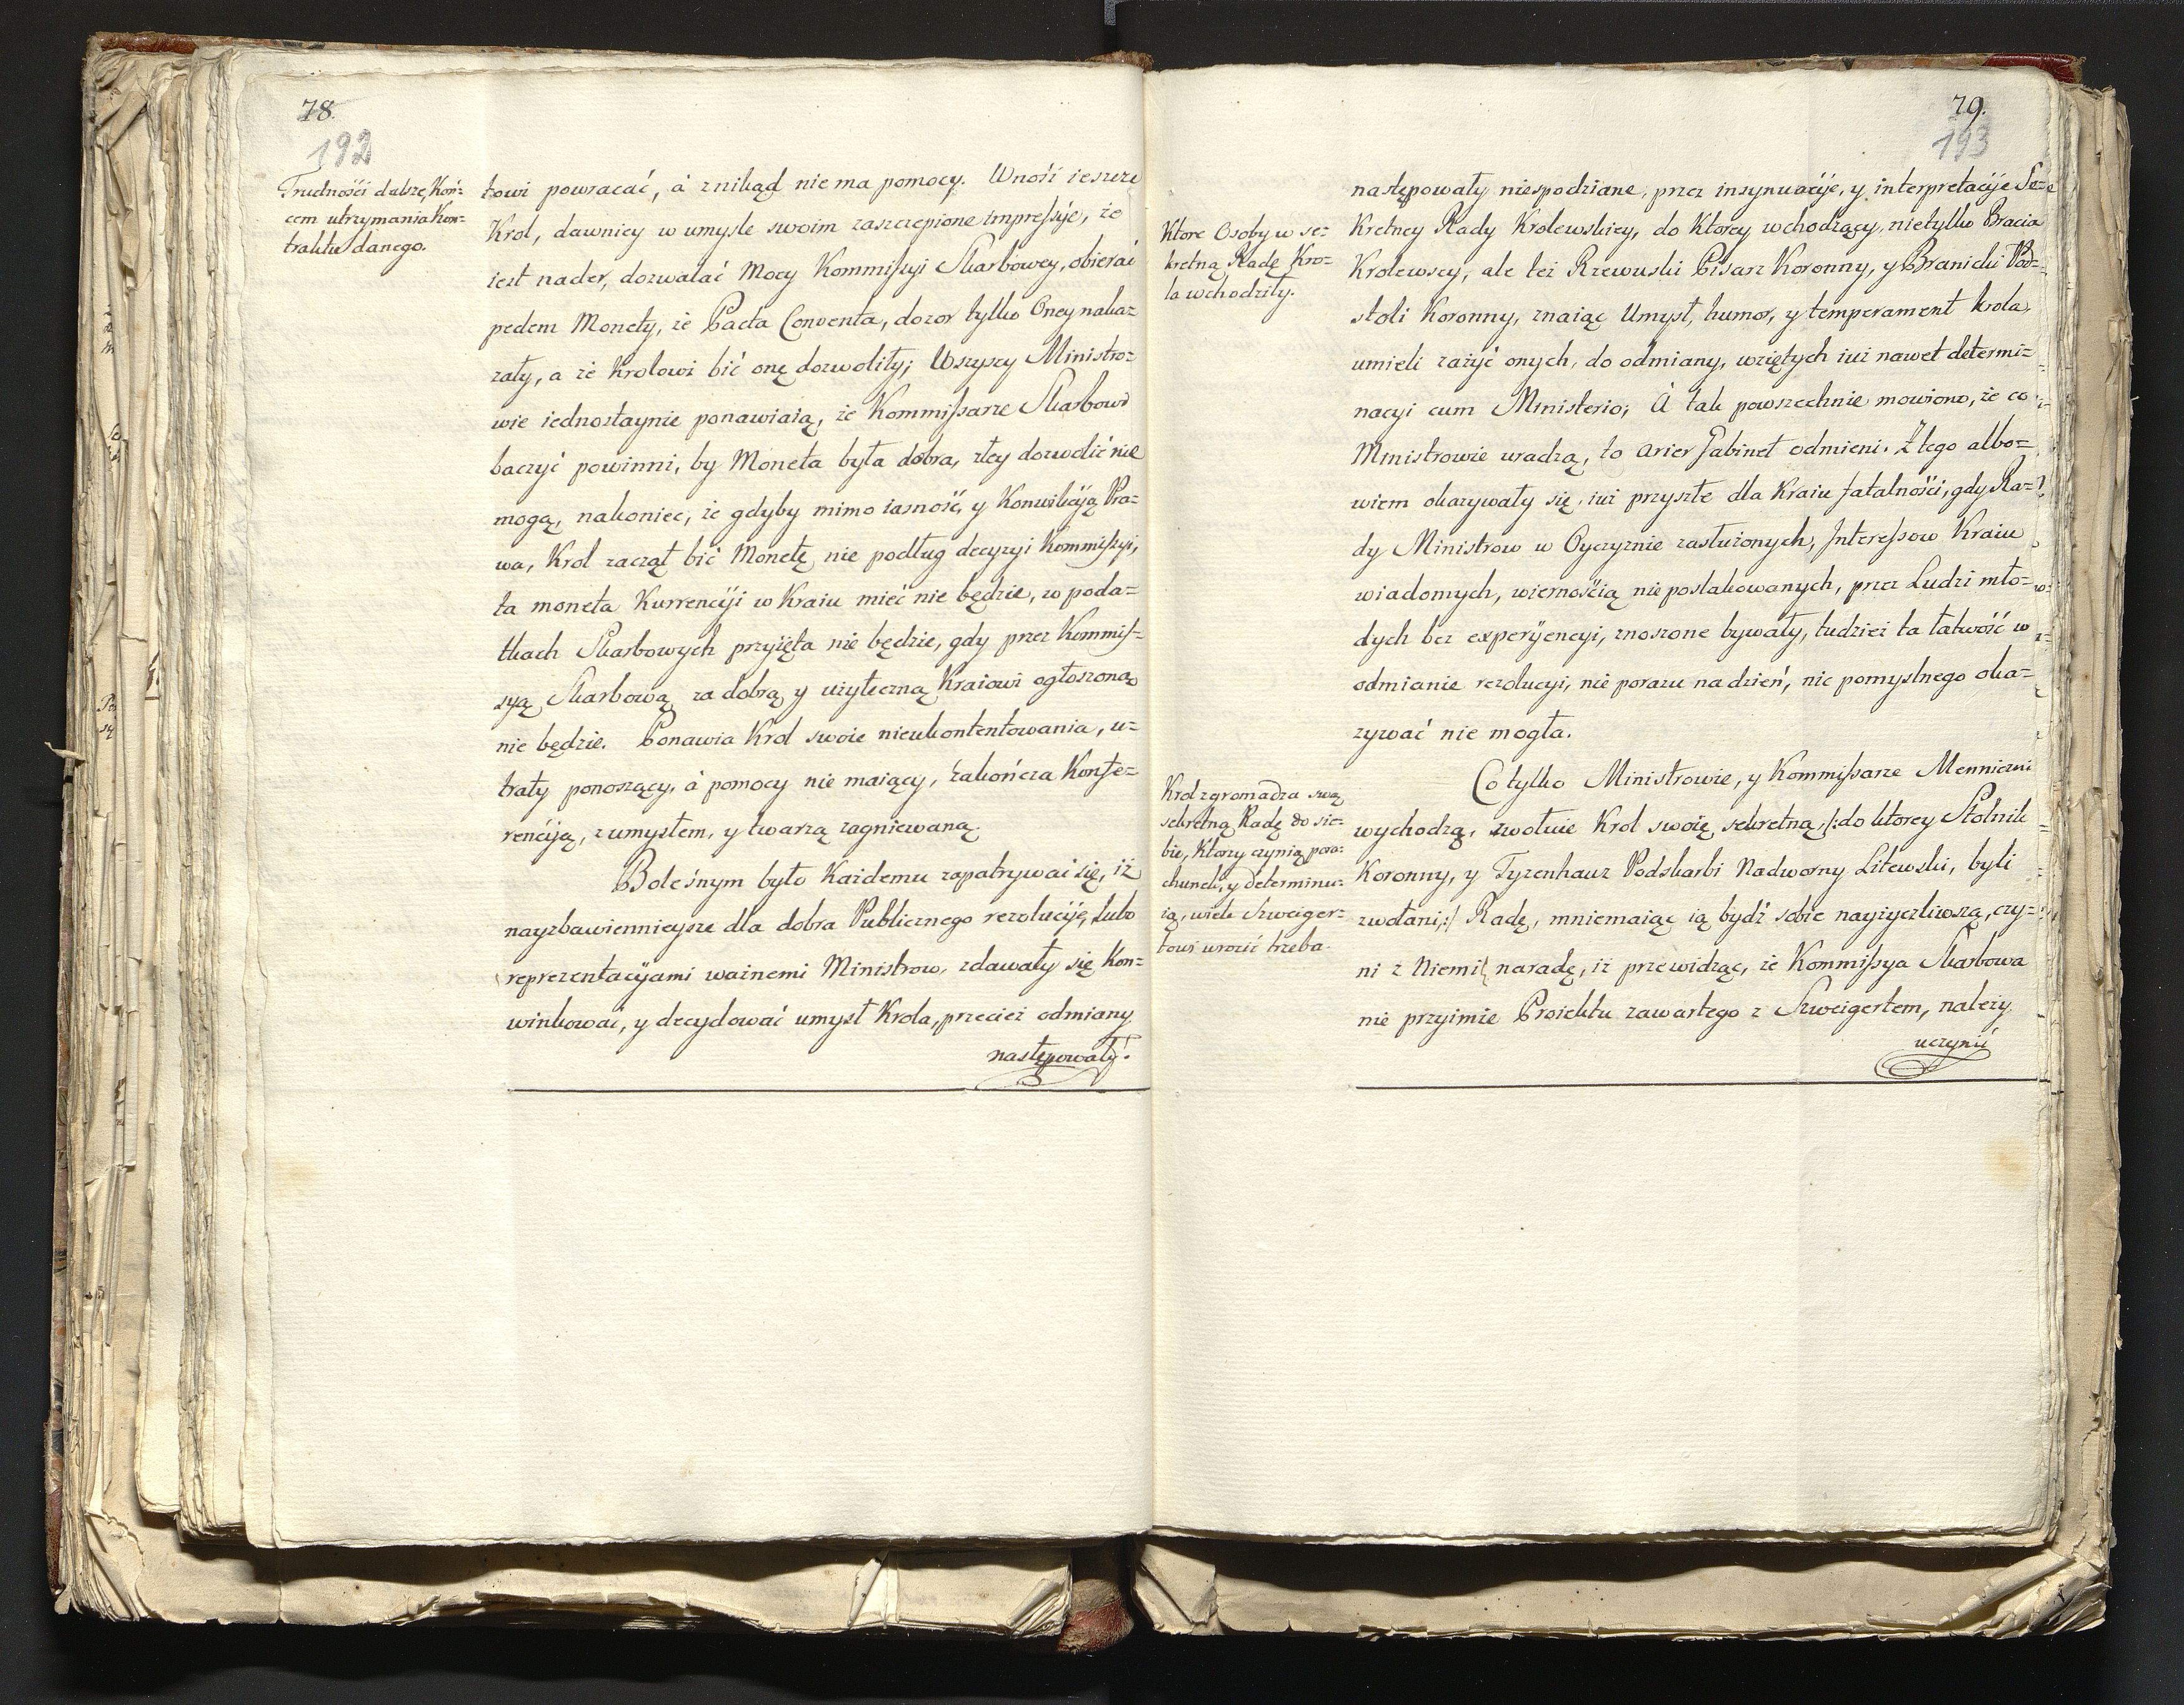 78.
192
Trudnośći dalsze, Koń=
cem utrzymania Kon=
traktu danego.
towi powracać, á znikąd nie ma pomocy. Wnośi ieszcze
Krol, dawniey w umysle swoim zaszczepione impreſsye, że
iest nader, dozwalać Mocy Kommiſsyi Skarbowey, obierać
pedem Monety, że Pacta Conventa, dozor tylko Oney naka=
zały, a że Krolowi bić onę dozwoliły; Wszyscy Ministro=
wie iednostaynie ponawiaią, że Kommiſsarze Skarbowi
baczyć powinni, by Moneta była dobra, złey dozwolić nie
mogą, nakoniec, że gdyby mimo iasność, y Konwikcyą Pra=
wa, Krol zaczął bić Monetę, nie podług decyzyi Kommiſsyi,
ta moneta Kurrencyi w Kraiu mieć nie będzie, w poda=
tkach Skarbowych przyięta nie będzie, gdy przez Kommiſ=
syą Skarbową, za dobrą y użyteczną Kraiowi ogłoszona
nie będzie. Ponawia Krol swoie nieukontentowania, u=
traty ponoszący, á pomocy nie maiący, zakończa Konfe=
rencyą, z umysłem, y twarzą zagniewaną.
Boleśnym było Każdemu zapatrywać się, iż
nayzbawiennieysze dla dobra Publicznego rezolucyje, lubo
reprezentacyjami ważnemi Ministrow, zdawały się Kon=
winkować, y decydować umysł Krola, przecież odmiany
następowały.
79.
193
Ktore Osoby w se=
kretną Radę Kro=
la wchodziły.
następowały niespodziane, przez insynuacyje, y interpretacyje Se=
kretney Rady Krolewskiey, do Ktorey wchodzący, nietylko Bracia
Krolewscy, ale też Rzewuski Pisarz Koronny, y Branicki Pod=
stoli Koronny, znaiąc Umysł, humor, y temperament krola,
umieli zażyć onych, do odmiany, wziętych iuż nawet determi=
nacyi cum Ministerio; á tak powszechnie mowiono, że co
Ministrowie uradzą, to arier Gabinet odmieni. Z tego albo=
wiem okazywały się, iuż przyszłe dla Kraiu fatalnośći, gdy Ra=
dy Ministrow w Oyczyznie zasłużonych, Intereſsow Kraiu
wiadomych, wiernośćią nieposlakowanych, przez Ludzi mło=
dych bez experyencyi, znoszone bywały, tudzież ta łatwość w
odmianie rezolucyi, nie porazu na dzień, nic pomyslnego oka=
zywać nie mogła.
Krol zgromadza swą
sekretną Radę do sie=
bie, Ktorzy czynią pora=
chunek, y determinu=
ią, wiele Szweiger=
towi wrocić trzeba.
Co tylko Ministrowie, y Kommiſsarze Menniczni
wychodzą, zwołuie Krol swoię sekretną /: do ktorey Stolnik
Koronny, y Tyzenhauz Podskarbi Nadworny Litewski, byli
zwołani :/ Radę, mniemaiąc ią bydź sobie nayżyczliwszą, czy=
ni z Niemi naradę, iż przewidząc, że Kommiſsya Skarbowa
nie przyimie Proiektu zawartego z Szweigertem, należy
uczynić